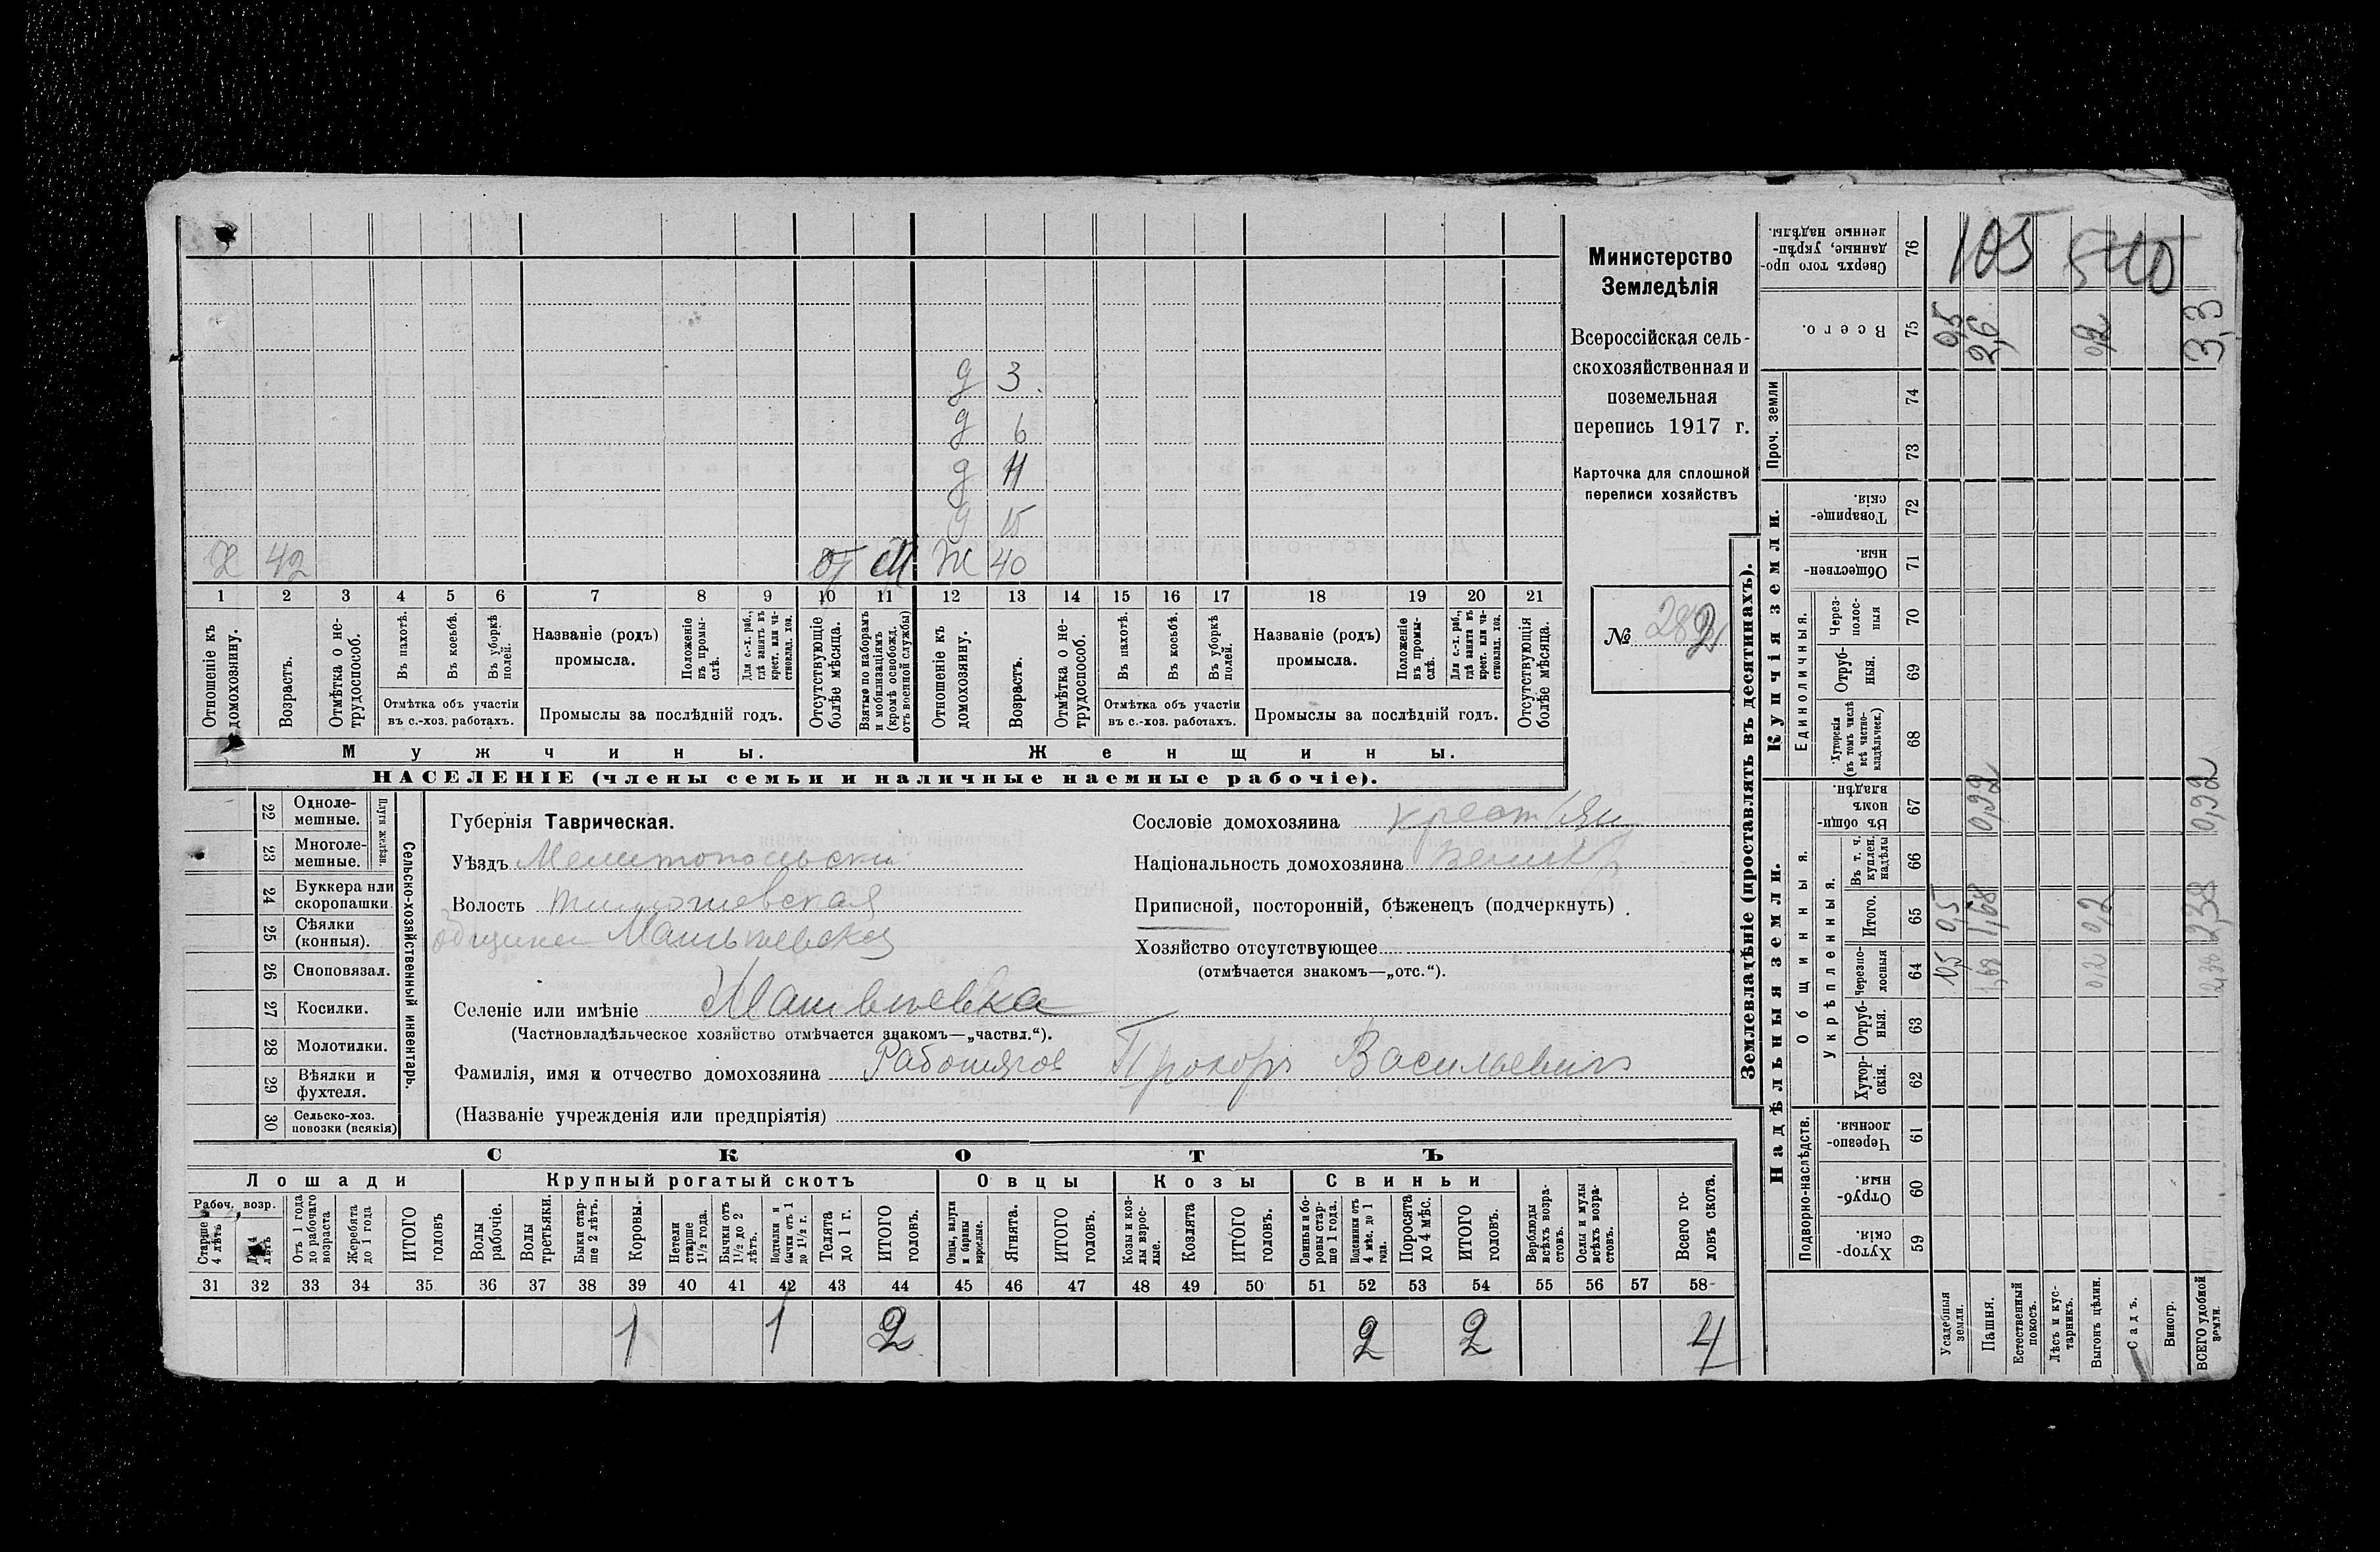 Министерство
Земледѣлія
Всероссійская сель-
скохозяйственная и
поземельная
перепись 1917 г.
Карточка для сплошной
переписи хозяйствъ
№ 282
д 3
д 6
д 11
д 15
Х 42 от М Ж 40
1 2 3 4 5 6 7 8 9 10 11 12 13 14 15 16 17 18 19 20 21
Отношеніе къ домохозяину.
Возрастъ.
Отмѣтка о не-трудоспособ.
Въ пахотѣ.
Въ косьбѣ.
Въ уборкѣ полей.
Отмѣтка объ участіи въ с.-хоз. работахъ.
Названіе (родъ) промысла.
Положеніе въ промы-слѣ.
Для с.-х. раб., гдѣ занятъ въ крест. или ча-стновлад. хоз.
Промыслы за послѣдній годъ.
Отсутствующіе болѣе мѣсяца.
Взятые по наборамъ и мобилизаціямъ (кромѣ освобожд. отъ военной службы)
Отношеніе къ домохозяину.
Возрастъ.
Отмѣтка о не-трудоспособ.
Въ пахотѣ.
Въ косьбѣ.
Въ уборкѣ полей.
Отмѣтка объ участіи въ с.-хоз. работахъ.
Названіе (родъ) промысла.
Положеніе въ промы-слѣ.
Для с.-х. раб., гдѣ занята въ крест. или ча-стновлад. хоз.
Промыслы за послѣдній годъ.
Отсутствующія болѣе мѣсяца.
Мужчины. Женщины.
НАСЕЛЕНІЕ (члены семьи и наличные наемные рабочіе).
Сельско-хозяйственный инвентарь.
Плуги желѣзн.
22 Однолемешные.
23 Многолемешные.
24 Буккера или скоропашки
25 Сѣялки (конныя).
26 Сноповязал.
27 Косилки.
28 Молотилки.
29 Вѣялки и фухтеля.
30 Сельско-хоз. повозки (всякія)
Губернія Таврическая.
Уѣздъ Мелитопольски
Волость тимошевская
община Матвѣевская
Селеніе или имѣніе Матвѣевка
(Частновладѣльческое хозяйство отмѣчается знакомъ—„частвл.“).
Фамилія, имя и отчество домохозяина Работягов Прокоръ Васильевичъ
(Названіе учрежденія или предпріятія)
Сословіе домохозяина крестьян
Національность домохозяина велик
Приписной, посторонній, бѣженецъ (подчеркнуть).
Хозяйство отсутствующее
(отмѣчается знакомъ—„отс.“).
СКОТЪ
Лошади Крупный рогатый скотъ Овцы Козы Свиньи
Рабоч. возр.
Старше 4 лѣтъ
До 4 лѣтъ
Отъ 1 года до рабочаго возраста
Жеребята до 1 года
ИТОГО головъ
Волы рабочіе.
Волы третьяки.
Быки стар-ше 2 лѣтъ.
Коровы.
Нетели старше 1½ года.
Бычки отъ 1½ до 2 лѣтъ.
Подтелки и бычки отъ 1 до 1½ г.
Телята до 1 г.
ИТОГО головъ.
Овцы, валухи и бараны взрослые.
Ягнята.
ИТОГО головъ.
Козы и коз-лы взрос-лые.
Козлята
ИТОГО головъ.
Свиньи и бо-ровы стар-ше 1 года.
Подсвинки отъ 4 мѣс. до 1 года.
Поросята до 4 мѣс.
ИТОГО головъ.
Верблюды всѣхъ возра-стовъ.
Ослы и мулы всѣхъ возра-стовъ.
Всего го-ловъ скота.
31 32 33 34 35 36 37 38 39 40 41 42 43 44 45 46 47 48 49 50 51 52 53 54 55 56 57 58
1 1 2 2 2 4
Землевладѣніе (проставлять въ десятинахъ).
Надѣльныя земли. Купчія земли.
Подворно-наслѣдств.
Общинныя.
Укрѣпленныя.
Единоличныя.
Проч. земли
59 Хутор-скія.
60 Отруб-ныя.
61 Черезпо-лосныя.
62 Хутор-скія.
63 Отруб-ныя.
64 Черезпо-лосныя
65 Итого.
66 Въ т. ч. куплен. надѣлы
67 Въ общин-номъ владѣн.
68 Хуторскія (въ томъ числѣ всѣ частно-владѣльческ.)
69 Отруб-ныя.
70 Через-полос-ныя
71 Обществен-ныя.
72 Товарище-скія.
73
74
75 Всего.
76 Сверхъ того про-данные, укрѣп-ленные надѣлы.
Усадебныя земли. 0,5 0,5 0,5
Пашня. 1,68 1,68 0,92 2,6
Естественный покосъ.
Лѣсъ и кус-тарникъ.
Выгонъ цѣлин. 0,2 0,2 0,2
Садъ.
Виногр.
ВСЕГО удобной земли. 2,38 2,38 0,92 3,3
105
540